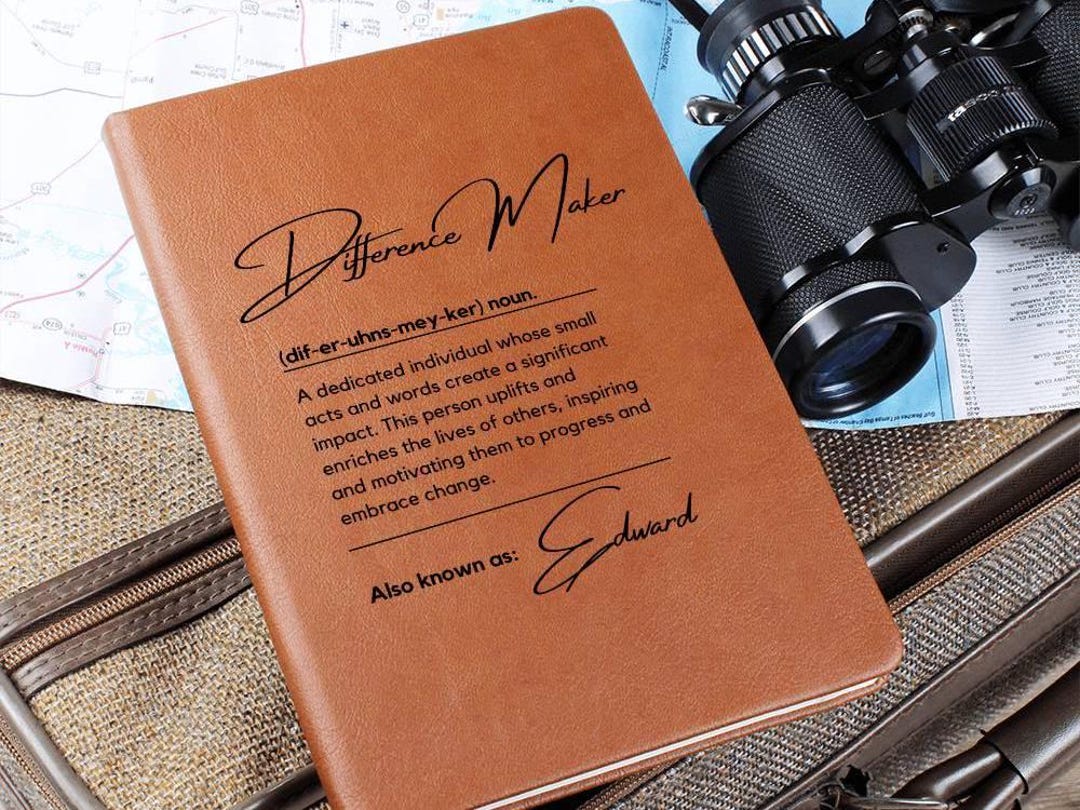 Difference Maker
(dif-er-uhns-mey-ker) noun.
A dedicated individual whose small
acts and words create a significant
impact. This person uplifts and
enriches the lives of others, inspiring
and motivating them to progress and
embrace change.
Also known as: Edward
tasco